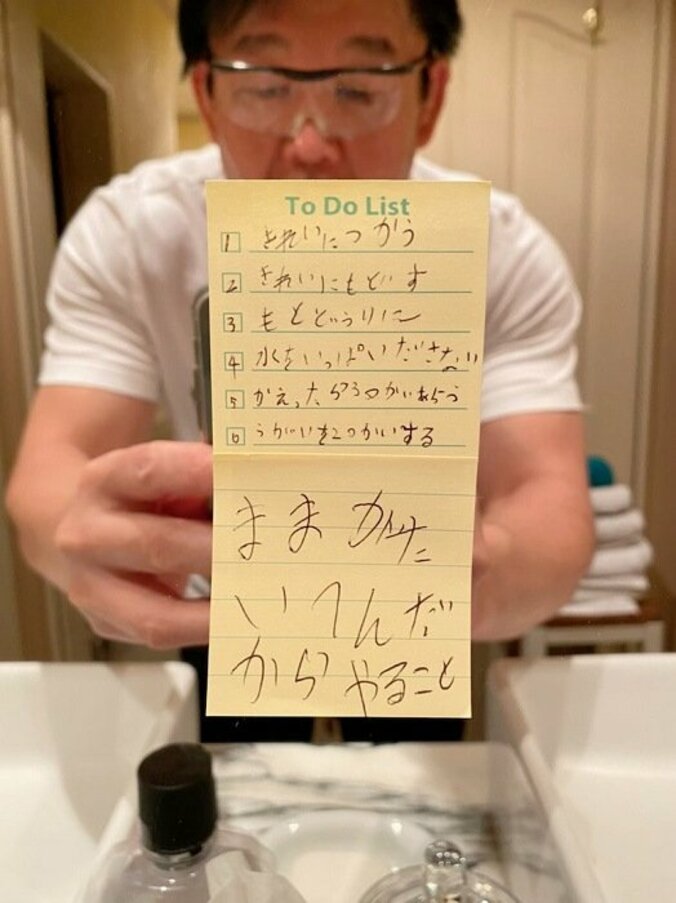 To Do List
1 きれいにつかう
2 きれいにもどす
3 もとどうりに
4 水をいっぱいださない
5 かえったら3かいあらう
6 うがいを2かいする
ままがた
いへんだ
からやること